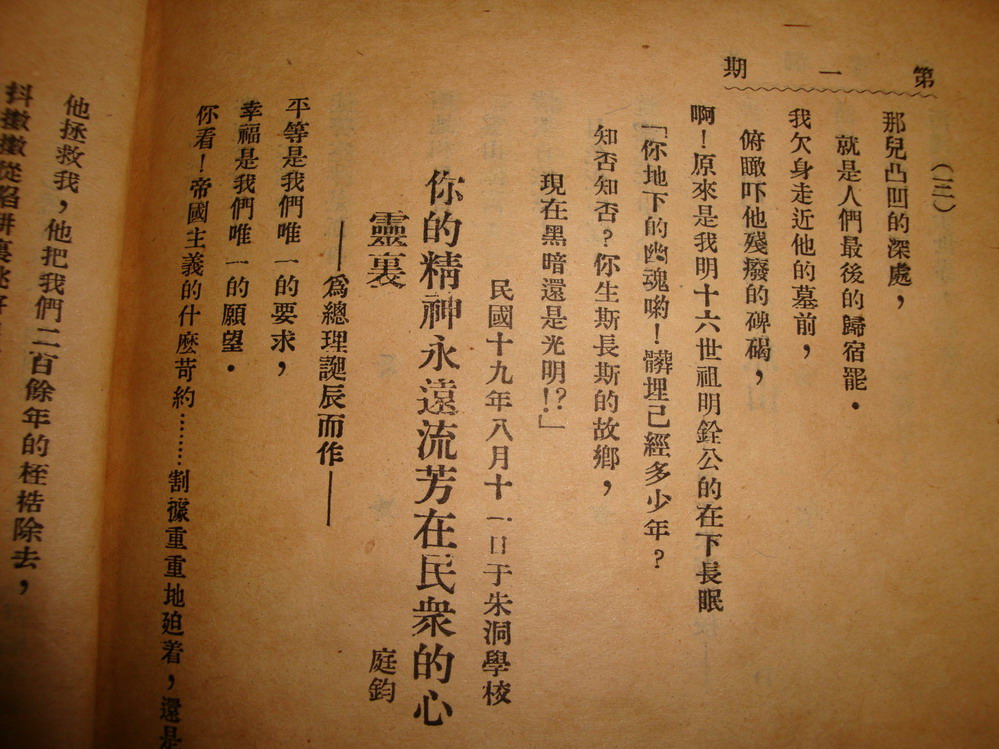 第一期
（三）
那兒凸凹的深處，
就是人們最後的歸宿罷．
我欠身走近他的墓前，
俯瞰吓他殘廢的碑碣，
啊！原來是我明十六世祖明銓公的在下長眠
「你地下的幽魂喲！髒埋已經多少年？
知否知否？你生斯長斯的故鄉，
現在黑暗還是光明！？」
民國十九年八月十一日于朱洞學校
你的精神永遠流芳在民衆的心
靈裏
庭鈞
——爲總理誕辰而作——
平等是我們唯一的要求，
幸福是我們唯一的願望．
你看！帝國主義的什麽苛約……割據重重地廹着，還是
他拯救我，他把我們二百餘年的桎梏除去，
抖擻擻從陷阱裏